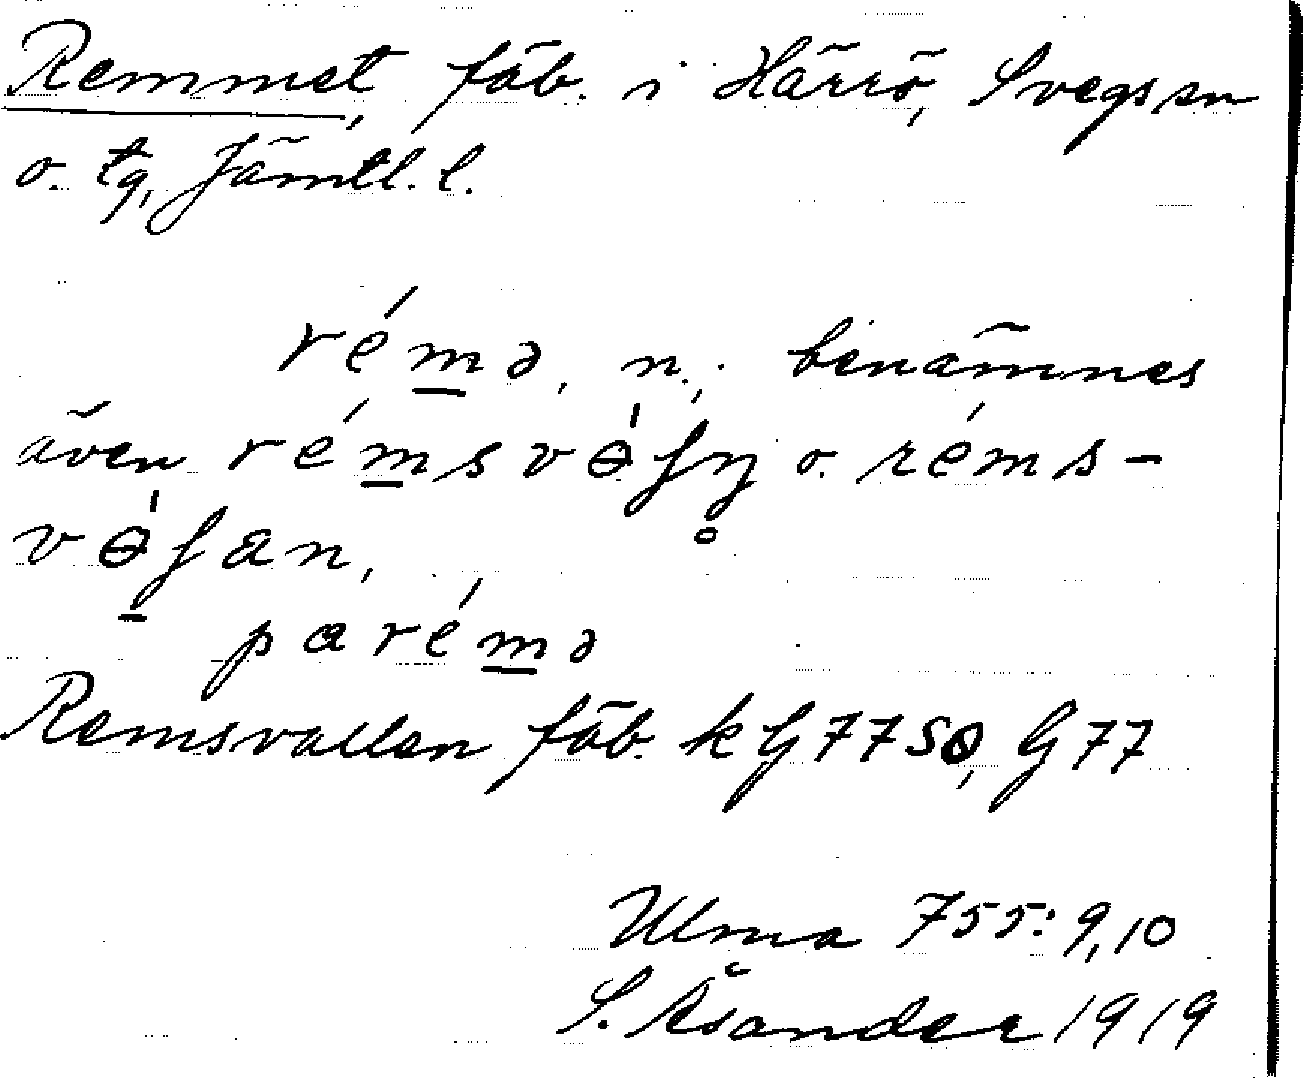 Remmet, fäb. i Härrö, Svegs sn
o. tg, Jämtl. l.
rém̲ə, n.; benämnes
även rém̲svɵ́ʃn̥ o. réms-
vɵ́ʃan,
parém̲ə
Remsvallen fäb. k G77SO, G77
Ulma 755: 9, 10
S. Åsander 1919